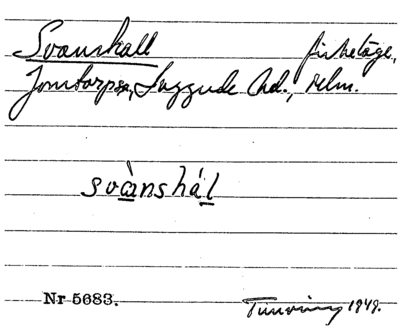 Svanshall fiskeläge,
Jonstorps sn, Luggude hd., Mlm.
svànshál
Nr 5683.
1949.